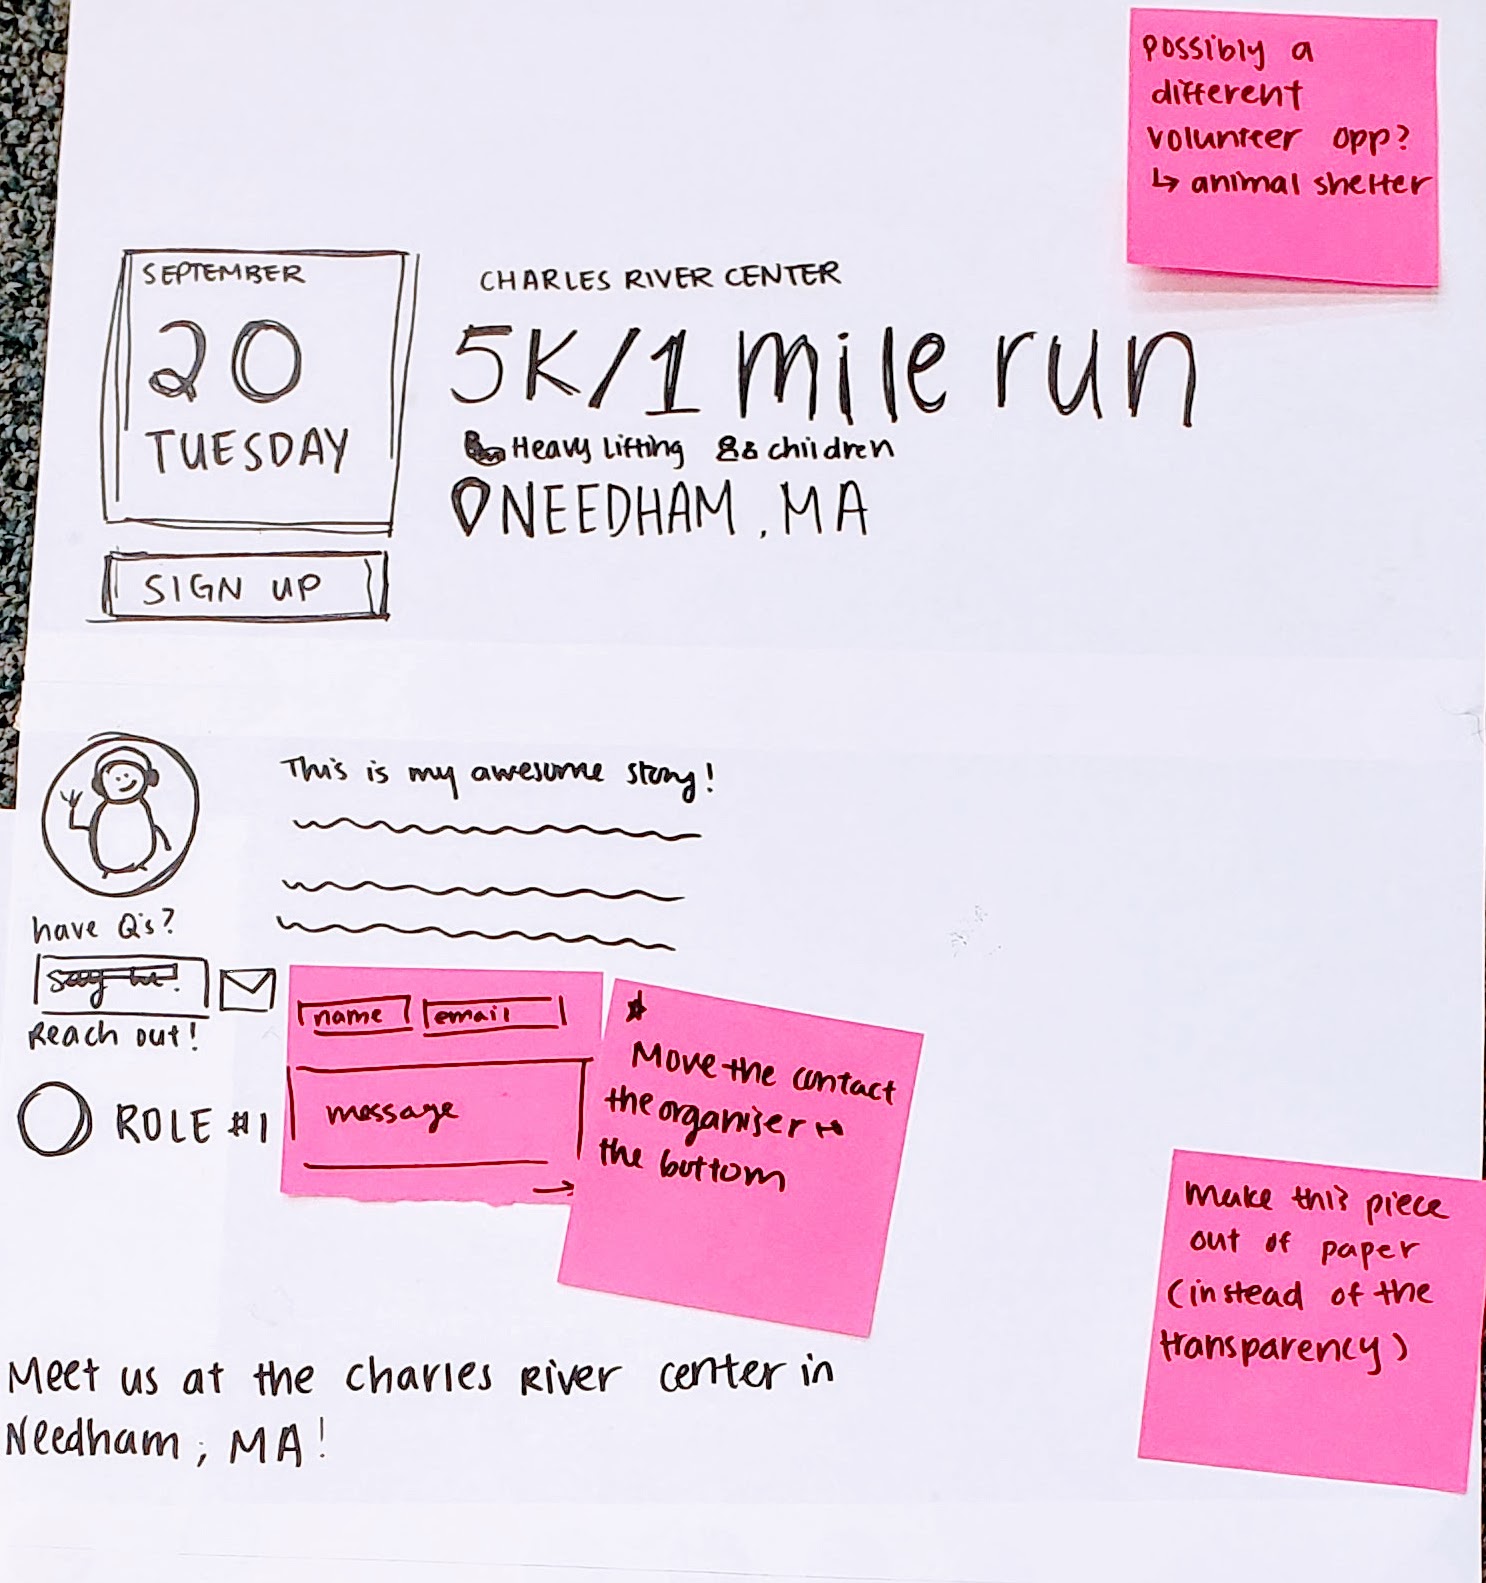 possibly a
different
volunteer opp?
↳ animal shelter
SEPTEMBER
20
TUESDAY
SIGN UP
CHARLES RIVER CENTER
5K/1 mile run
Heavy lifting children
NEEDHAM, MA
This is my awesome story!
have Q's?
say hi!
Reach out!
name email
message
→
★
Move the contact
the organiser to
the buttom
ROLE #1
make this piece
out of paper
(instead of the
transparency)
Meet us at the Charles River center in
Needham, MA!